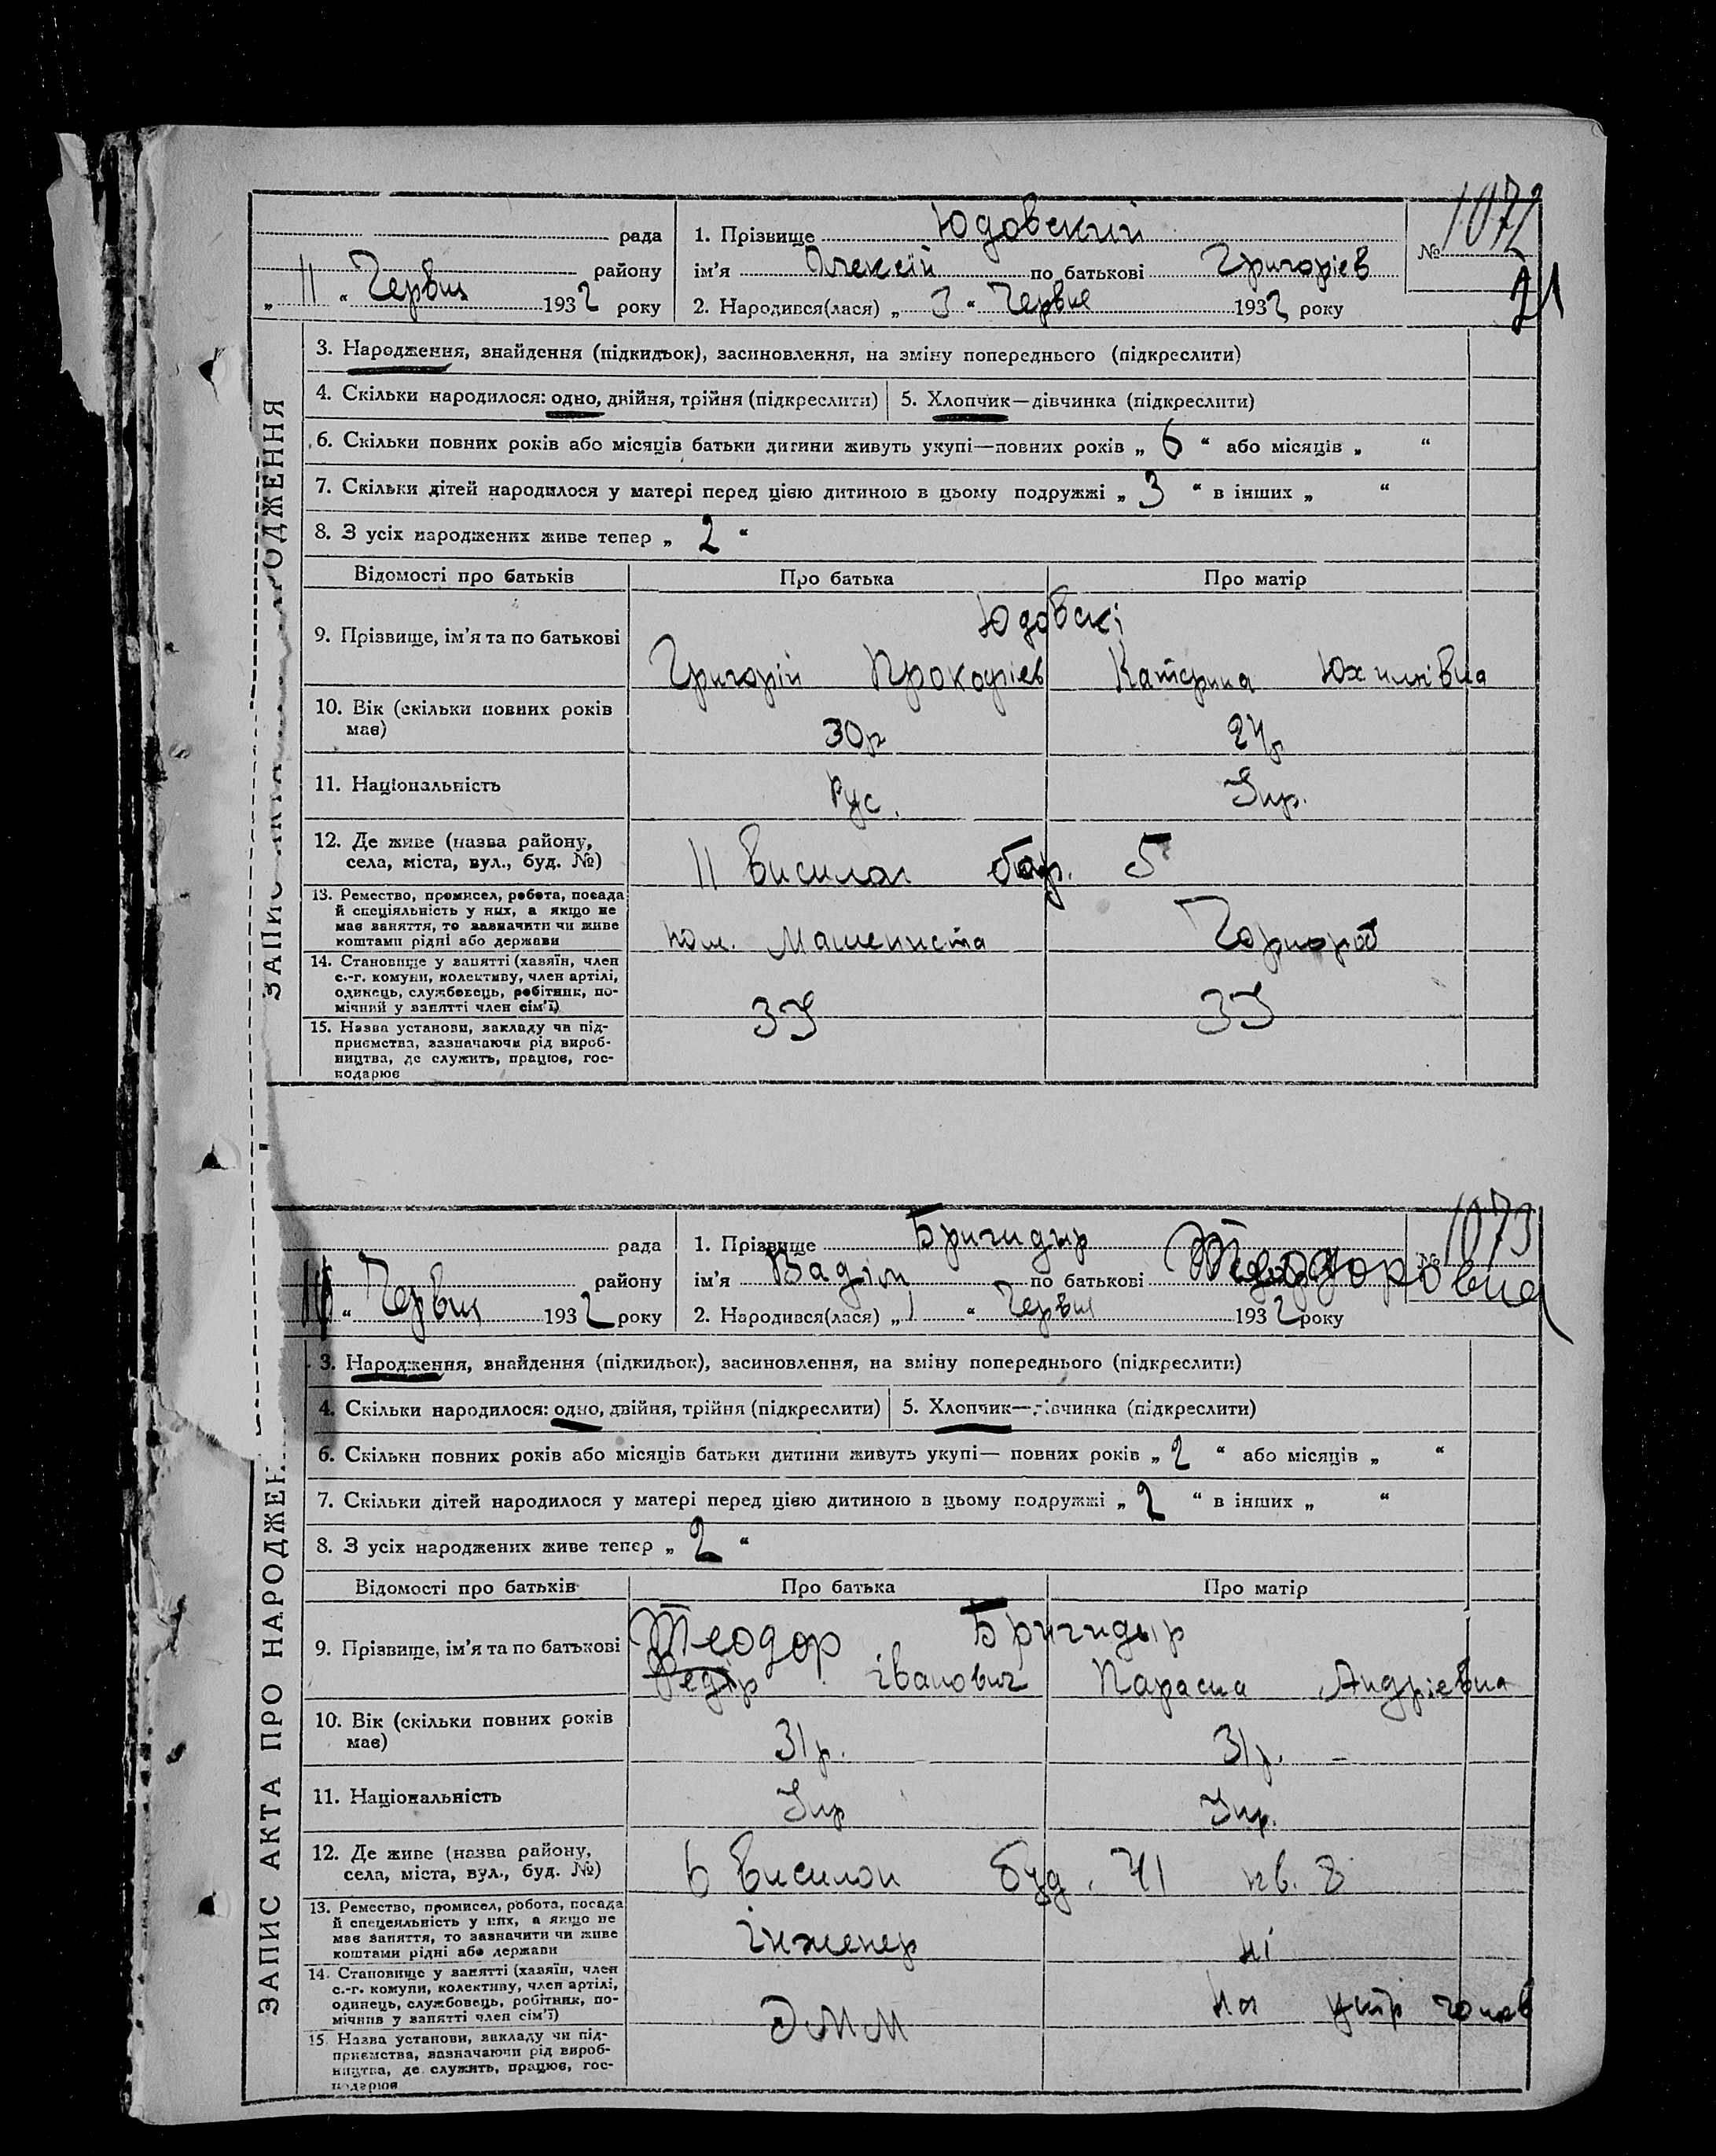 ЗАПИС АКТА ПРО НАРОДЖЕННЯ
рада
району
„ 11 “ Червня 1932 року
1. Прізвище Юдовский
№ 1072
21
ім’я Алексій по батькові Григоріев
2. Народився(лася) „ 3 “ Червня 1932 року
3. Народження, знайдення (підкидьок), засиновлення, на зміну попереднього (підкреслити)
4. Скільки народилося: одно, двійня, трійня (підкреслити) 5. Хлопчик—дівчинка (підкреслити)
6. Скільки повних років або місяців батьки дитини живуть укупі—повних років „ 6 “ або місяців „ “
7. Скільки дітей народилося у матері перед цією дитиною в цьому подружжі „ 3 “ в інших „ “
8. З усіх народжених живе тепер „ 2 “
Відомості про батьків Про батька Про матір
Юдовскі
9. Прізвище, ім’я та по батькові
Григорій Прокофіев Катерина Юхимівна
10. Вік (скільки повних років
має)
30р 24р
11. Національність Рус. Укр.
12. Де живе (назва району,
села, міста, вул., буд. №)
11 Висилок бар. 5
13. Ремество, промисел, робота, посада
й спеціяльність у них, а якщо не
має заняття, то зазначити чи живе
коштами рідні або держави
пом. Машениста Чорнороб
14. Становище у занятті (хазяїн, член
с.-г. комуни, колективу, член артілі,
одинець, службовець, робітник, по-
мічний у занятті член сім’ї)
ЗУ ЗУ
15. Назва установи, закладу чи під-
приємства, зазначаючи рід вироб-
ництва, де служить, працює, гос-
подарює
ЗАПИС АКТА ПРО НАРОДЖЕН
рада
району
“ Червня 1932 року
1. Прізвище Бригидыр
№ 1073
ім’я Вадім по батькові Теодорович
2. Народився(лася) „ 1 “ Червня 1932 року
3. Народження, знайдення (підкидьок), засиновлення, на зміну попереднього (підкреслити)
4. Скільки народилося: одно, двійня, трійня (підкреслити) 5. Хлопчик—дівчинка (підкреслити)
6. Скільки повних років або місяців батьки дитини живуть укупі— повних років „ 2 “ або місяців „ “
7. Скільки дітей народилося у матері перед цією дитиною в цьому подружжі „ 2 “ в інших „ “
8. З усіх народжених живе тепер „ 2 “
Відомості про батьків Про батька Про матір
Теодор Бригидыр
9. Прізвище, ім’я та по батькові
Федір Іванович Параска Андріевна
10. Вік (скільки повних років
має)
31р. 31р.
11. Національність Укр Укр.
12. Де живе (назва району,
села, міста, вул., буд. №)
6 Висилок буд. 41 кв. 8
13. Ремество, промисел, робота, посада
й спецеяльність у них, а якщо не
має заняття, то зазначити чи живе
коштами рідні або держави
інженер ні
14. Становище у занятті (хазяїн, член
с.-г. комуни, колективу, член артілі,
одинець, службовець, робітник, по-
мічнив у занятті член сім’ї)
ЭММ на утр чолов
15. Назва установи, закладу чи під-
приємства, зазначаючи рід вироб-
ництва, де служить, працює, гос-
подарює